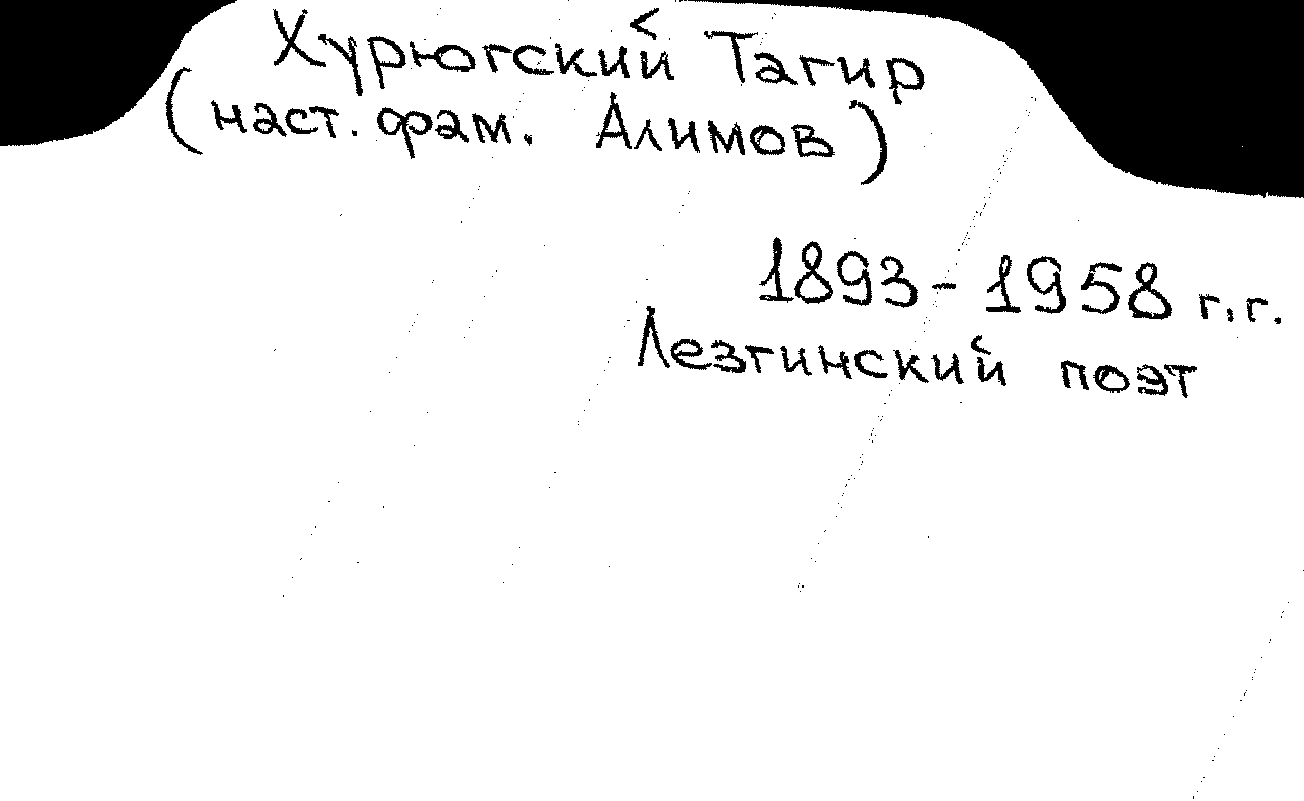 Хурюгский Тагир
(наст. фам. Алимов)
1893-1958 г.г.
Лезгинский поэт